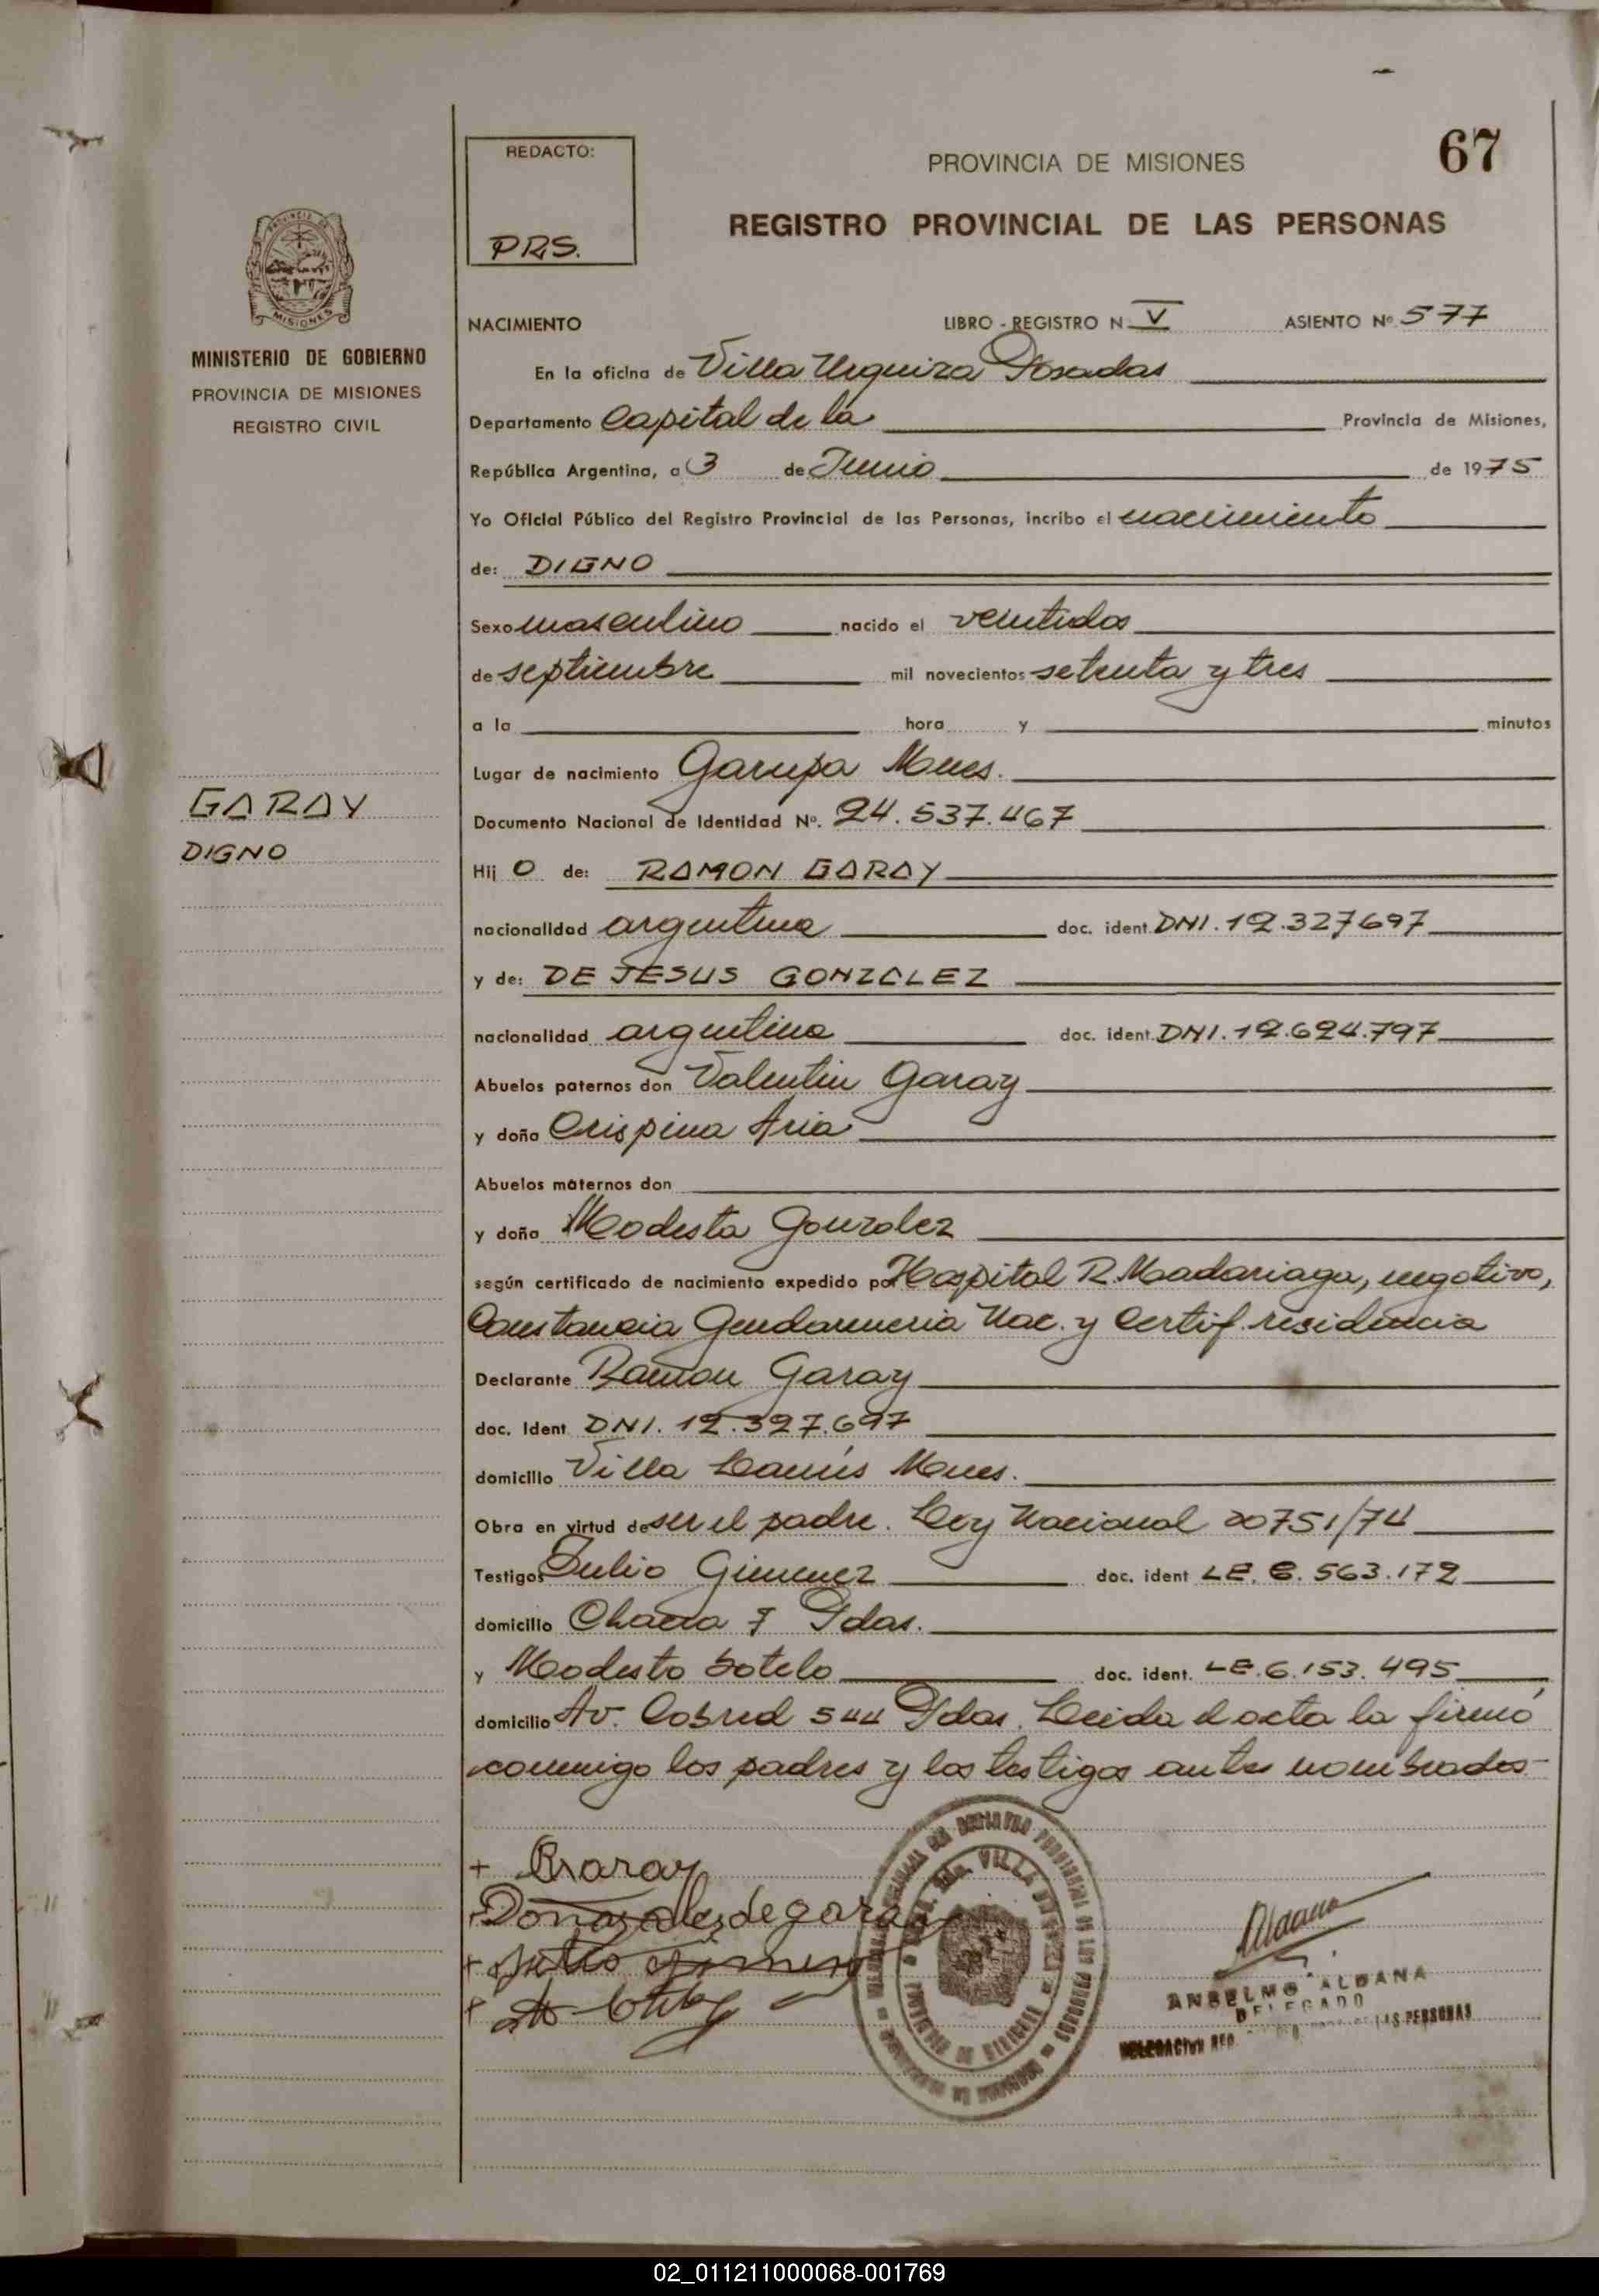 67
REDACTO:
PRS.
PROVINCIA DE MISIONES
REGISTRO PROVINCIAL DE LAS PERSONAS
MISIONES
MINISTERIO DE GOBIERNO
PROVINCIA DE MISIONES
REGISTRO CIVIL
GARAY
DIGNO
NACIMIENTO LIBRO - REGISTRO N V ASIENTO Nº 577
En la oficina de Villa Urquiza Posadas
Departamento Capital de la Provincia de Misiones,
República Argentina, a 3 de Junio de 1975
Yo Oficial Público del Registro Provincial de las Personas, incribo el nacimiento
de: DIGNO
Sexo masculino nacido el veintidos
de septiembre mil novecientos setenta y tres
a la hora y minutos
Lugar de nacimiento Garupa Mnes.
Documento Nacional de Identidad Nº. 24.537.467
Hij o de: RAMON GARAY
nacionalidad argentina doc. ident. DNI. 12.327697
y de: DE JESUS GONZALEZ
nacionalidad argentina doc. ident. DNI. 12.624.797
Abuelos paternos don Valentin Garay
y doña Crispina Aria
Abuelos maternos don
y doña Modesta Gonzalez
según certificado de nacimiento expedido por Hospital R. Maadariaga, negativo,
Constancia Gendarmeria Nac. y Certif. residencia
Declarante Ramon Garay
doc. Ident DNI. 12.327.697
domicilio Villa Lanús Mnes.
Obra en virtud de ser el padre. Ley Nacional 20751/74
Testigos Julio Gimenez doc. ident LE. 6. 563.172
domicilio Chacra 7 Pdas.
y Modesto Sotelo doc. ident. LE. 6.153.495
domicilio Av. Cobred 544 Pdas. Leida el acta la firmó
conmigo los padres y los testigos antes nombrados-
+ Rgaray
Donazalez de garay
+ Julio
ANSELMO ALDANA
DELEGADO
DELEGACION REG. LAS PERSONAS
VILLA URQUIZA
02_011211000068-001769